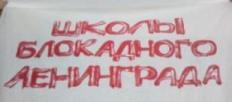 ШКОЛЫ
БЛОКАДНОГО
ЛЕНИНГРАДА